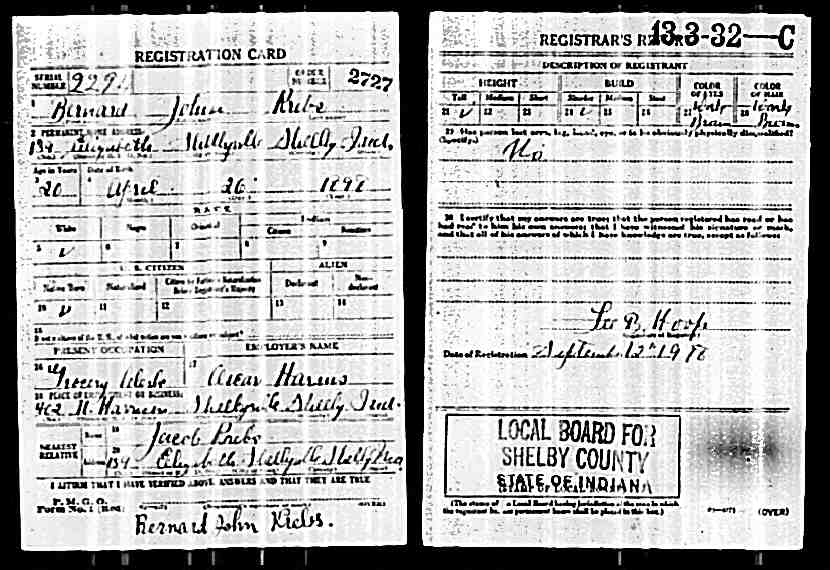 REGISTRATION CARD
SERIAL NUMBER
ORDER NUMBER 2727
1 Bernard John Krebs
2 PERMANENT HOME ADDRESS:
134 Elizabeth Shelbyville Shelby Ind.
Age in Years Date of Birth
3 20 4 April 26 1898
RACE
White Negro Oriental Indian
Citizen
5 ✓ 6 7 8 9
U. S. CITIZEN ALIEN
Native Born Naturalized Declarant Non-declarant
10 ✓ 11 12 13 14
15
PRESENT OCCUPATION EMPLOYER'S NAME
16 Grocery 17 Oscar
18 PLACE OF EMPLOYMENT OR BUSINESS:
402 Shelbyville Shelby Ind.
NEAREST RELATIVE
Name 19 Jacob Krebs
Address 20 134 Elizabeth Shelbyville Shelby Ind
I AFFIRM THAT I HAVE VERIFIED ABOVE ANSWERS AND THAT THEY ARE TRUE
P. M. G. O.
Form No. 1 (Red)
Bernard John Krebs.
REGISTRAR'S REPORT 13-3-32-C
DESCRIPTION OF REGISTRANT
HEIGHT BUILD COLOR OF EYES COLOR OF HAIR
Tall Medium Short Slender Medium Stout
21 ✓ 22 23 24 ✓ 25 26 27 28
29 Has person lost arm, leg, hand, eye, or is he obviously physically disqualified?
(Specify.)
No
30 I certify that my answers are true; that the person registered has read or has
had read to him his own answers; that I have witnessed his signature or mark,
and that all of his answers of which I have knowledge are true, except as follows:
Date of Registration September 12 1918
LOCAL BOARD FOR
SHELBY COUNTY
STATE OF INDIANA
(The stamp of the Local Board having jurisdiction of the area in which
the registrant has his permanent home shall be placed in this box.)
(OVER)